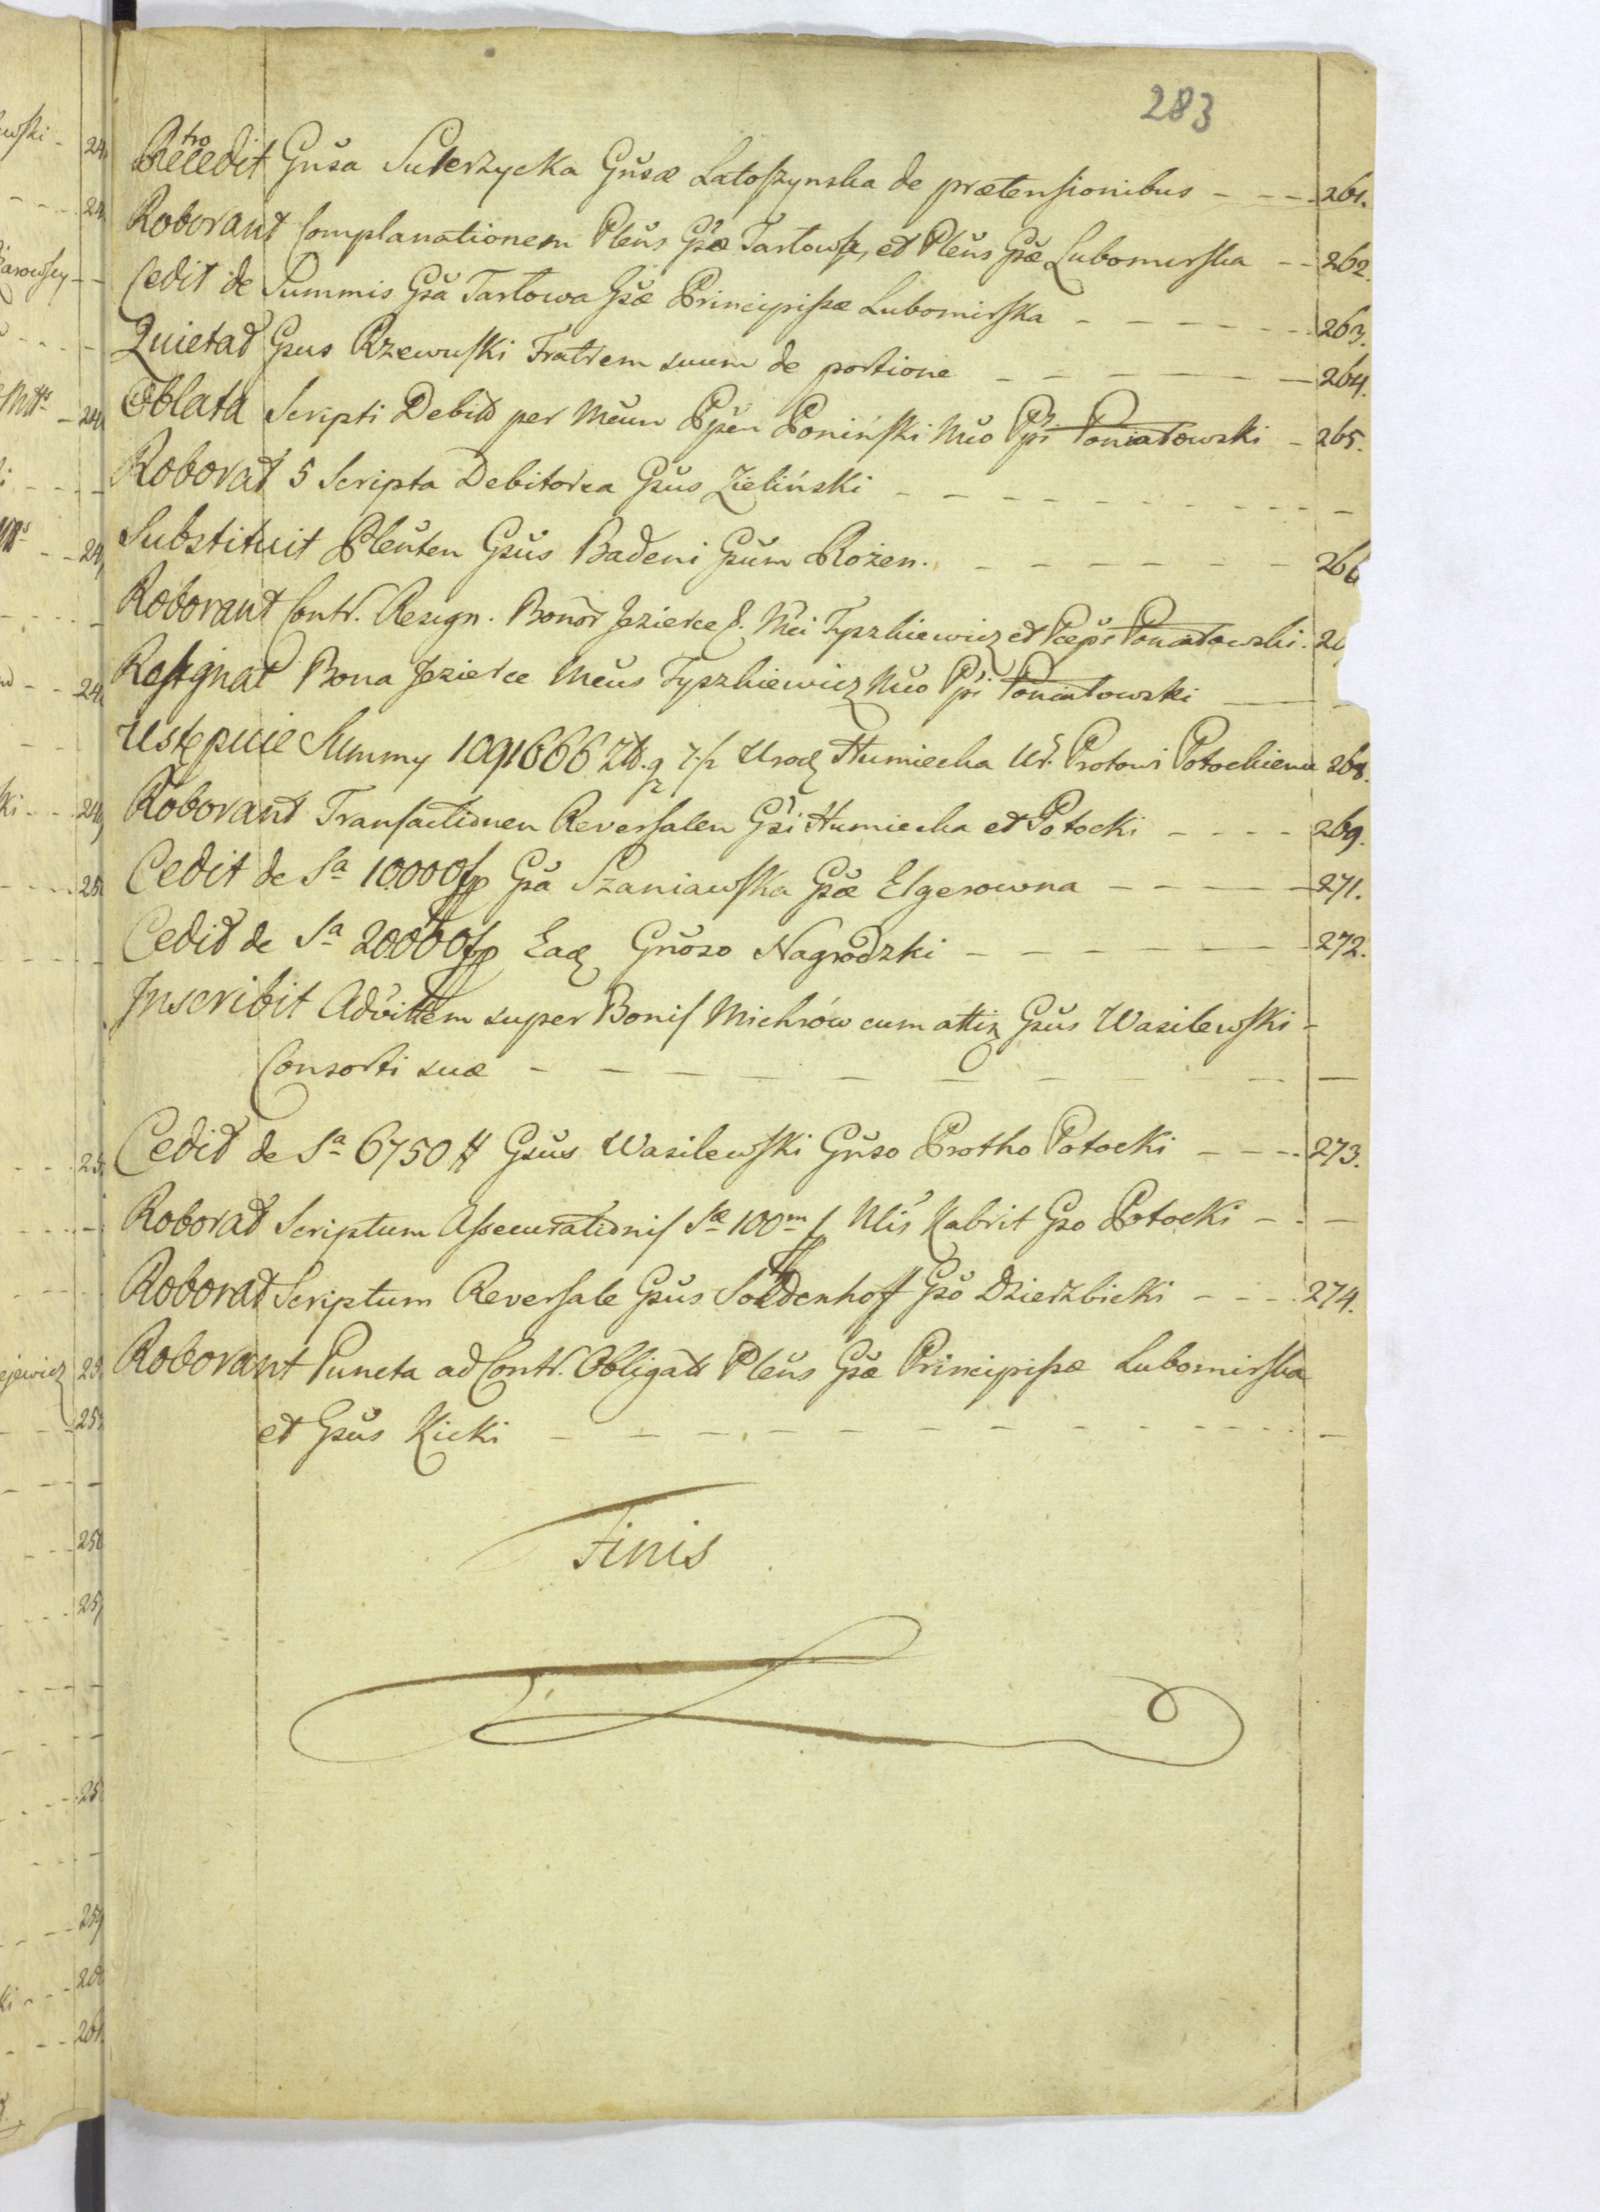 283
Retrocedit Gnsa Suterzycka Gnsæ Latoszynska de prætensionibus - - - 261.
Roborant Complanationem Plens Gsæ Tarłowa, et Plens Gsæ Lubomirska - - 262
Cedit de Summis Gsa Tarłowa Gsæ Principissæ Lubomirska - - - - - - 263.
Quietat Gsus Rzewuski Fratrem suum de portione - - - - - - 264.
Oblata Scripti Debiti per Mcum Ppem Poniński Mco Ppi Poniatowski - 265.
Roborat 5 Scripta Debitorea Gsus Zieliński - - - - - - - - -
Substituit Plenten Gsus Badeni Gsum Rożen. - - - - - - 266
Roborant Contr. Resign. Bonor Jezierce S. Mci Tyszkiewicz et Pceps Poniatowski. 26
Resignat Bona Jezierce Mcus Tyszkiewicz Mco Ppi Poniatowski - -
Ustępuie Summy 1091666 Zł. g. 7 1/2 Urodz Humiecka Ur. Protowi Potockiemu 268.
Roborant Transactionem Reversalem Gsi Humiecka et Potocki - - - - 269.
Cedit de Sa 10000 fp Gsa Szaniawska Gsæ Elgerowna - - - - - 271.
Cedit de Sa 20000 fp Ead Gnoso Nagrodzki - - - - - - 272.
Inscribit Advittem super Bonis Michrów cum attiz Gsus Wasilewski -
Consorti suæ - - - - - - - - - -
Cedit de Sa 6750 # Gsus Wasilewski Gnso Protho Potocki - - - - 273.
Roborat Scriptum Assecurationis Sæ 100m f Nlis Kabrit Gso Potocki - - -
Roborat Scriptum Reversale Gsus Soldenhoff Gso Dzierzbicki - - - - 274.
Roborant Puncta ad Contr. Obligatt Plens Gsæ Principissæ Lubomirska
et Gsus Kicki - - - - - - - - - - - -
Finis